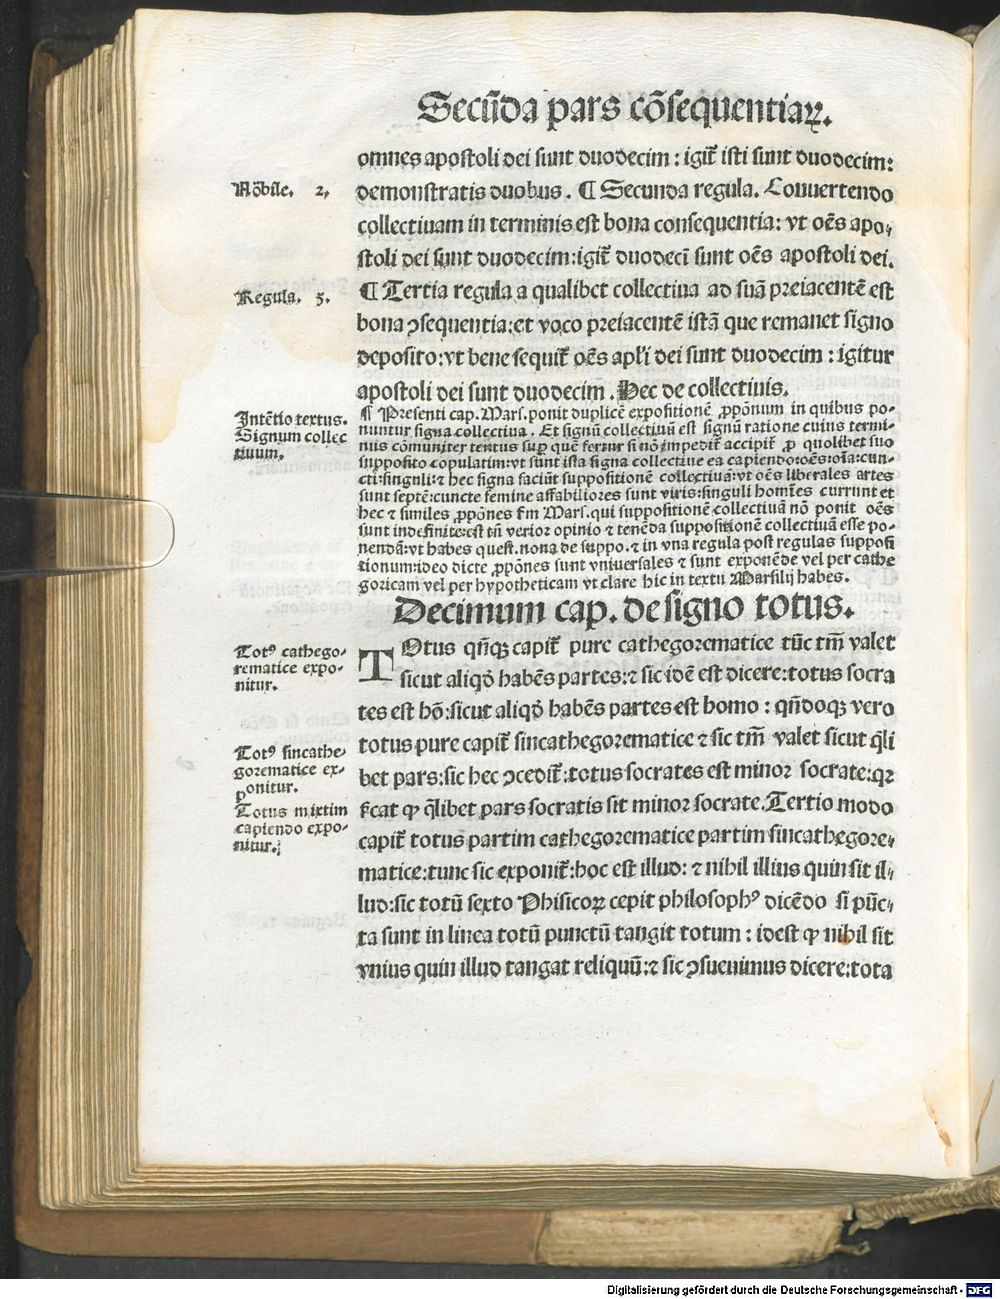 Secũda pars cõsequentiaꝝ.
omnes apostoli dei sunt duodecim : igit̃ isti sunt duodecim:
Nõbile. 2.
demonstratis duobus. ¶ Secunda regula. Conuertendo
collectiuam in terminis est bona consequentia: vt oẽs apo⸗
stoli dei sunt duodecim: igit̃ duodecĩ sunt oẽs apostoli dei.
Regula. 3.
¶ Tertia regula a qualibet collectiua ad suã preiacentẽ est
bona ꝯsequentia: et voco preiacentẽ istã que remanet signo
deposito: vt bene sequit̃ oẽs apl'i dei sunt duodecim : igitur
apostoli dei sunt duodecim. Hec de collectiuis.
Intẽtio textus.
Signum collec
tiuum.
¶ Presenti cap. Mars. ponit duplicẽ expositionẽ ꝓpõnium in quibus po⸗
nuntur signa collectiua. Et signũ collectiuũ est signũ ratione cuius termi⸗
nus cõmuniter tentus suꝑ quẽ fertur si nõ impedit̃ accipit̃ ꝓ quolibet suo
supposito copulatim: vt sunt ista signa collectiue ea capiendo: oẽs: oĩa: cun⸗
cti: singuli: ⁊ hec signa faciũt suppositionẽ collectiuã: vt oẽs liberales artes
sunt septẽ: cuncte femine affabiliores sunt viris: singuli homĩes currunt et
hec ⁊ similes ꝓpõnes fm̃ Mars. qui suppositionẽ collectiuã nõ ponit oẽs
sunt indefinite: est tñ verior opinio ⁊ tenẽda suppositionẽ collectiuã esse po⸗
nendã: vt habes quest. nona de suppo. ⁊ in vna regula post regulas supposi
tionum: ideo dicte ꝓpõnes sunt vniuersales ⁊ sunt exponẽde vel per cathe
goricam vel per hypotheticam vt clare hic in textu Marsilij habes.
Decimum cap. de signo totus.
Tot⁹ cathego⸗
rematice expo⸗
nitur.
TOtus qñqꝫ capit̃ pure cathegorematice tũc tm̃ valet
sicut aliqď habẽs partes: ⁊ sic idẽ est dicere: totus socra
tes est hõ: sicut aliqď habẽs partes est homo : qñdoqꝫ vero
Tot⁹ sincathe⸗
gorematice ex⸗
ponitur.
totus pure capit̃ sincathegorematice ⁊ sic tm̃ valet sicut q̃li
bet pars: sic hec ꝯcedit̃: totus socrates est minor socrate: qꝛ
Totus mixtim
capiendo expo⸗
nitur.
s̃cat ꝙ q̃libet pars socratis sit minor socrate. Tertio modo
capit̃ totus partim cathegorematice partim sincathegore⸗
matice: tunc sic exponit̃: hoc est illud: ⁊ nihil illius quin sit il⸗
lud: sic totũ sexto Phisicoꝝ cepit philosoph⁹ dicẽdo si pũc⸗
ta sunt in linea totũ punctũ tangit totum : idest ꝙ nihil sit
vnius quin illud tangat reliquũ: ⁊ sic ꝯsueuimus dicere: tota
Digitalisierung gefördert durch die Deutsche Forschungsgemeinschaft - DFG